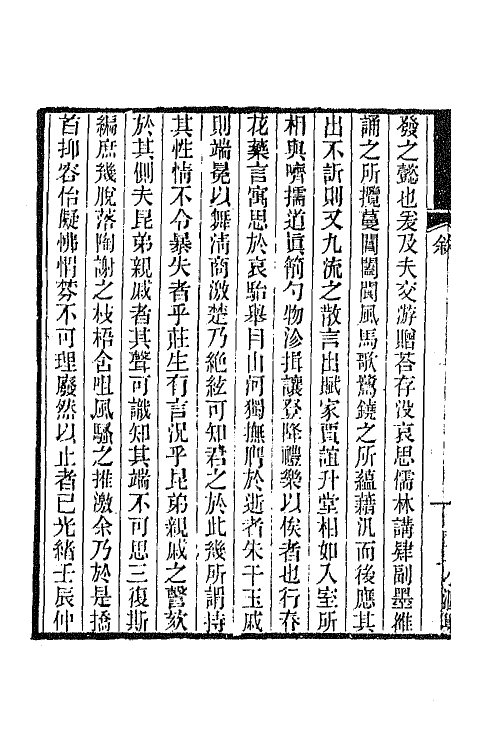 發之懿也爰及夫交游贈荅存没哀思儒林講肄副墨雒
誦之所攬蔓閶闔閬風馬歌鷺鐃之所蘊藉汎而後應其
出不訢則又九流之散言出賦家賈誼升堂相如入室所
相與嚌擩道眞箾勺物沴揖讓登降禮樂以俟者也行春
花藥言寓思於哀駘舉目山河獨撫膺於逝者朱干玉戚
則端冕以舞淸商激楚乃絶絃可知君之於此幾所謂持
其性情不令暴失者乎莊生有言況乎昆弟親戚之謦欬
於其側夫昆弟親戚者其聲可識知其端不可思三復斯
編庶幾脫落陶謝之枝梧含咀風騷之推激余乃於是撟
首抑容佁儗怫悁棼不可理廢然以止者已光緒壬辰仲
敘